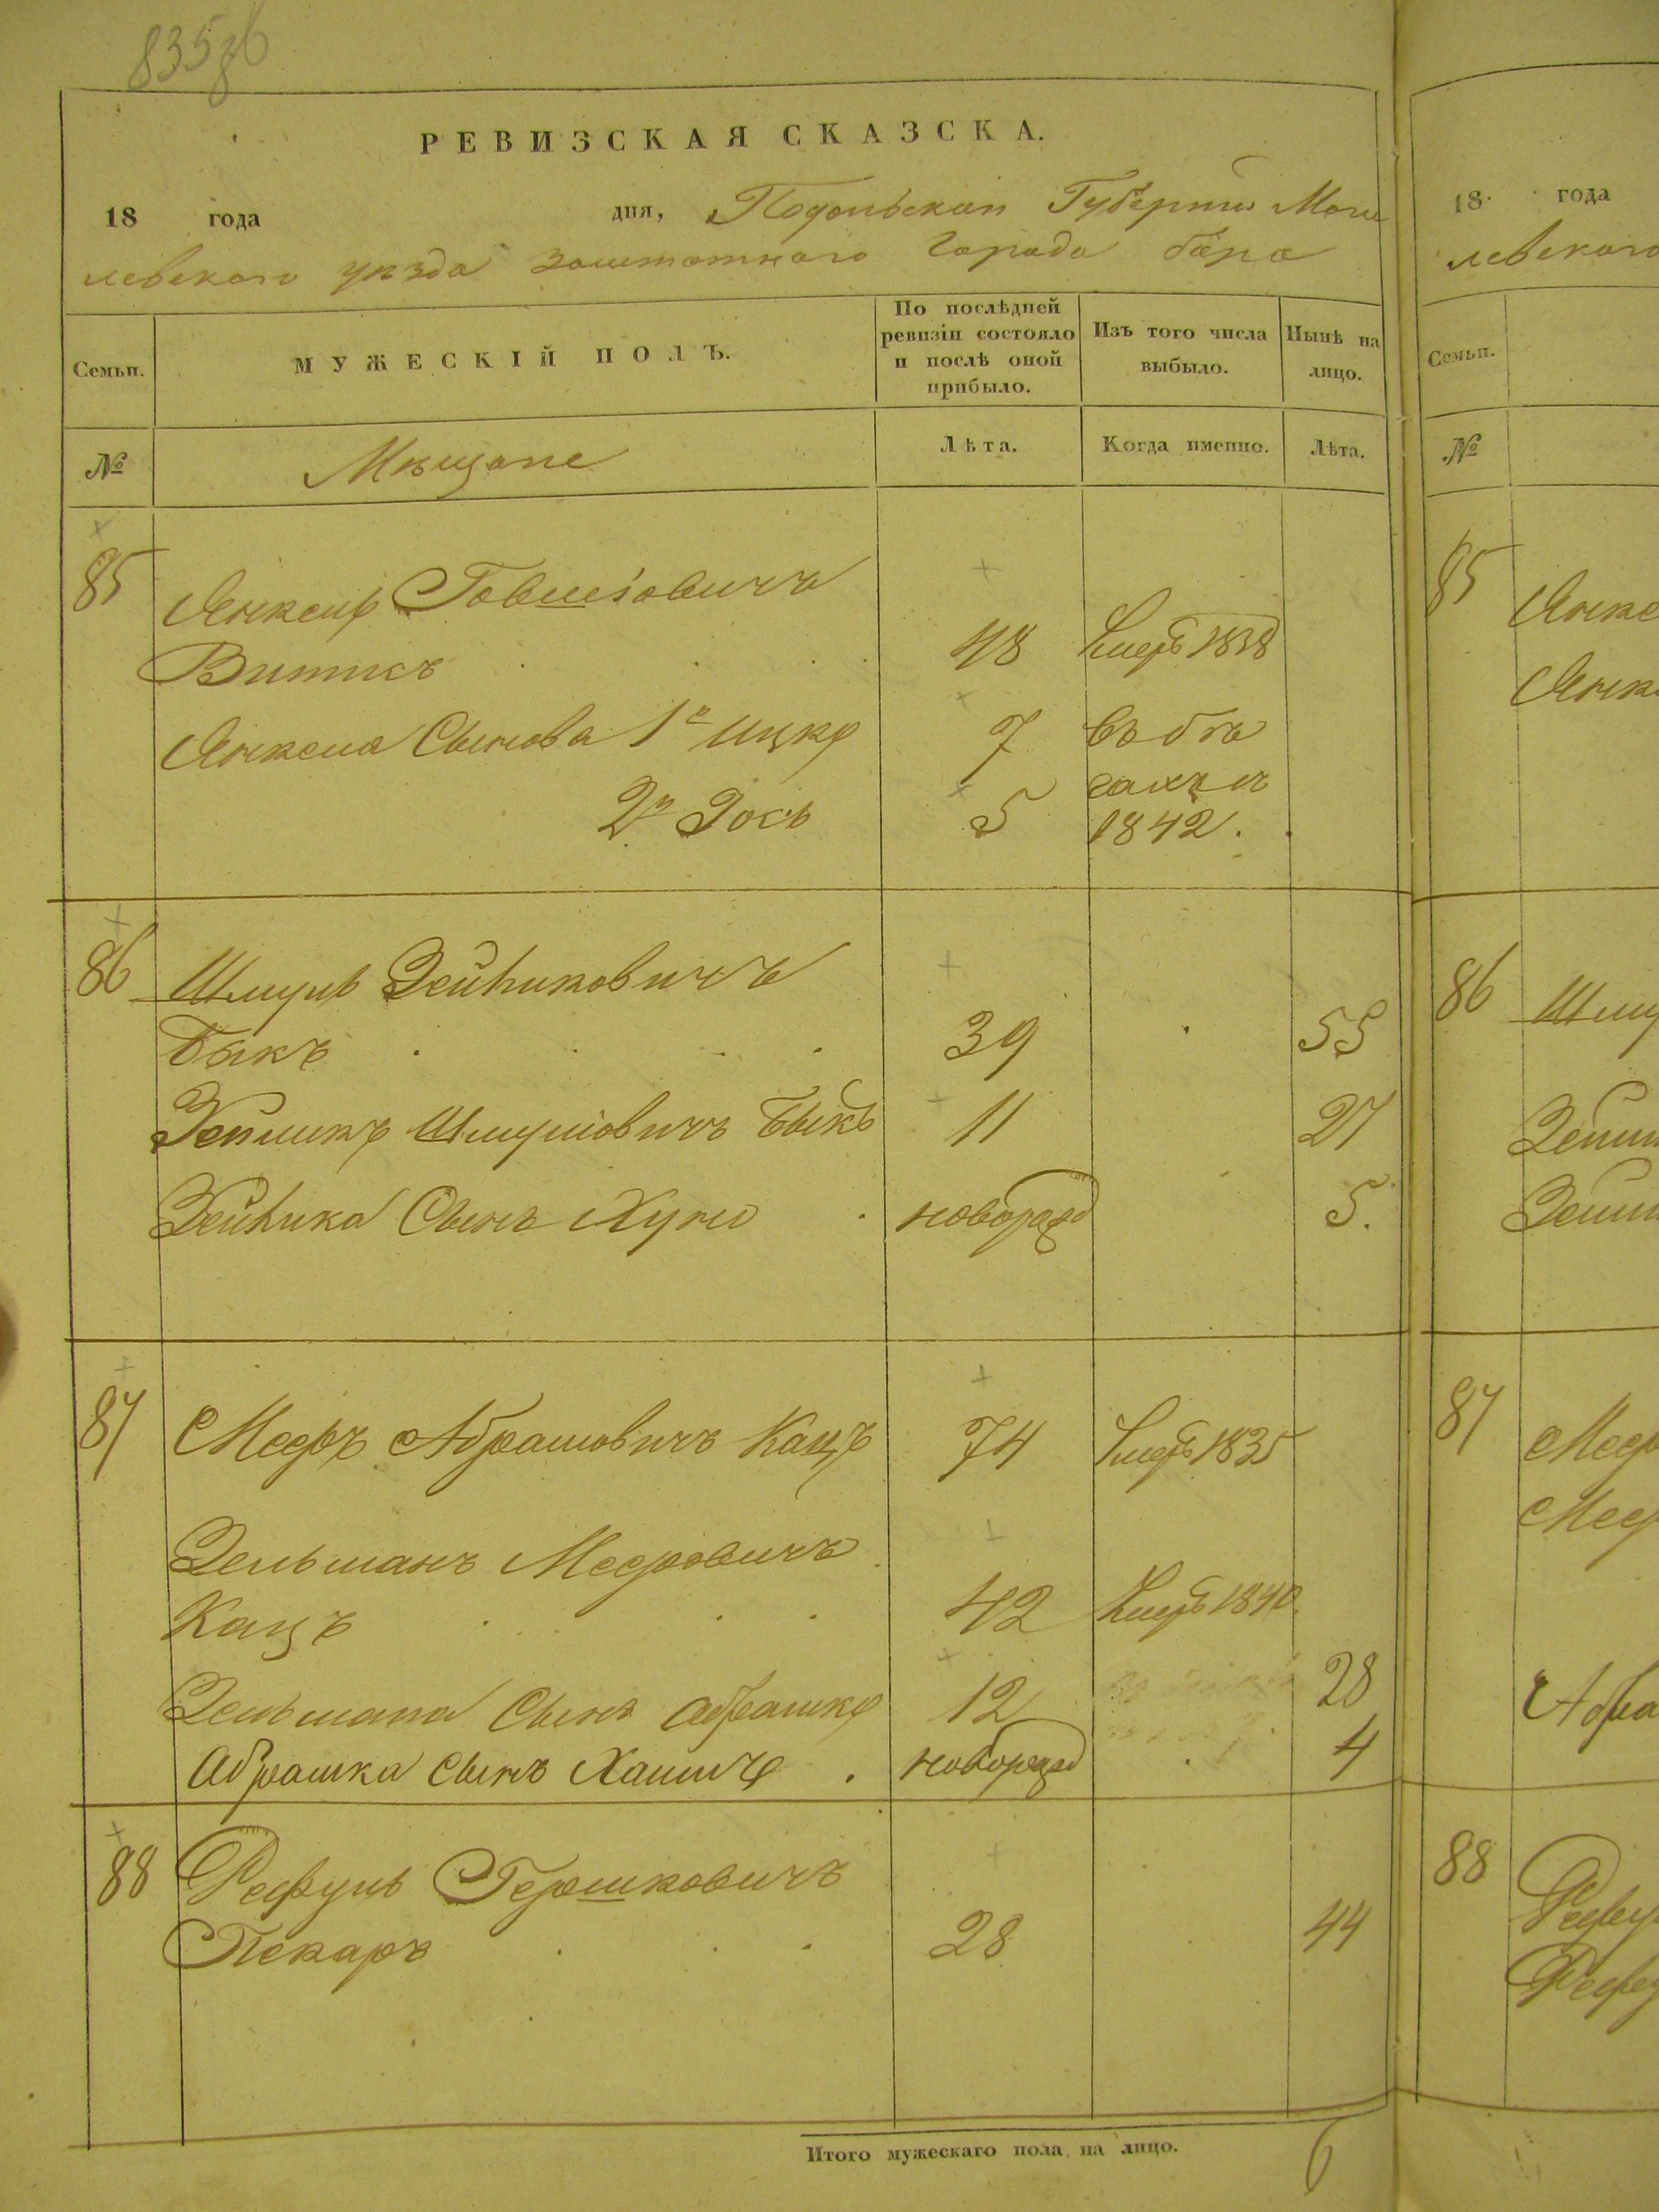 РЕВИЗСКАЯ СКАЗСКА.
18 года дня, Подольской Губернии Моги
левского уѣзда заштатнаго города бара
Семьи. МУЖЕСКІЙ ПОЛЪ. По послѣдней ревизіи состояло и послѣ оной прибыло. Изъ того числа выбыло. Нынѣ на лицо.
№ Мѣщане Лѣта. Когда именно. Лѣта.
85 Янкель
48 1838
Янкеля Сынова 1й Ицко 7 въ бѣ
2й Іось 5 гахъ съ
1842.
86 Шмуль Зейликовичъ
Быкъ 39 55
Зейликъ Шмулiовичъ Быкъ 11 27
Зейлика Сынъ Хуна новорожд 5.
87 Мееръ Абрамовичъ Кацъ 74 умеръ 1835
Зельманъ Мееровичъ
Кацъ 42 умеръ 1840
Зельмана Сынъ Абрашко 12 28
Абрашка Сынъ новорожд 4
88 Рефуль Гершковичъ
Пекаръ 28 44
Итого мужескаго пола на лицо. 6
18 года
левского
Семьи.
№
85 Янке
Янк
86 Шму
Зейли
Зейли
87 Меер
Меер
Абра
88 Рефу
Рефу